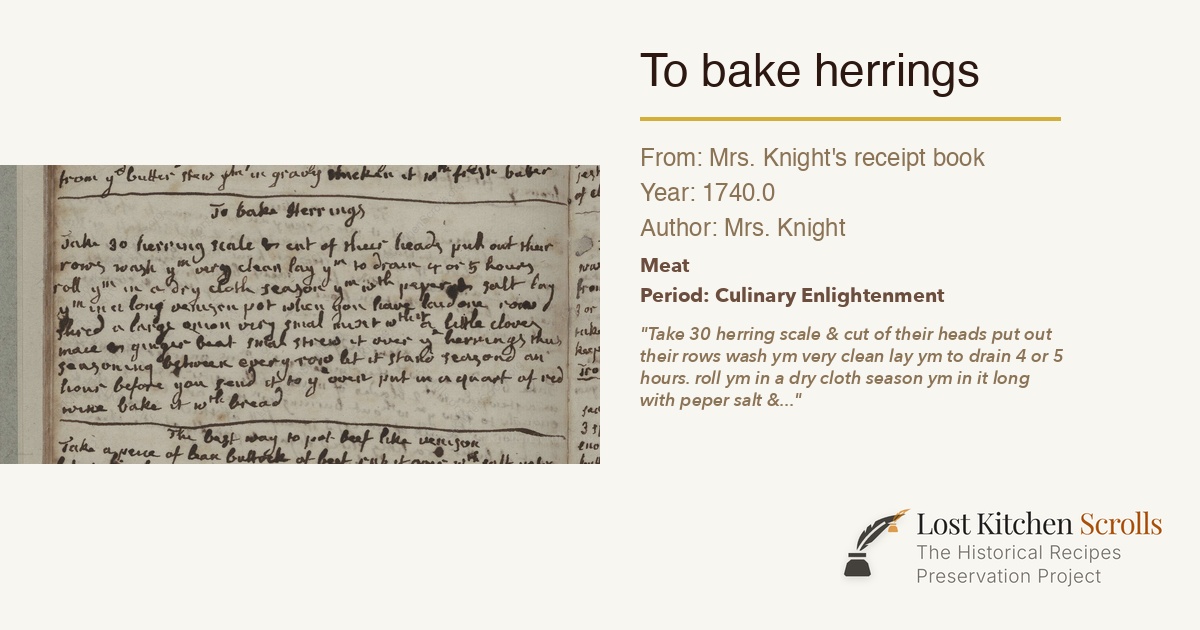 from yᵉ butter stew yᵐ in gravy thicken it wᵗʰ fresh buter
To bake Herrings
Take 30 herring scale & cut of their heads pull out their
rows wash yᵐ very clean lay yᵐ to drain 4 or 5 hours
roll yᵐ in a dry cloth season yᵐ wᵗʰ peper & salt lay
yᵐ in a long venison pot when you have laid one row
shred a large onion very smal mixt wᵗʰ a little cloves
mace & ginger beat smal strew it over yᵉ herrings thus
seasoning between every row let it stand seasond an
hour before you send it to yᵉ oven put in a quart of red
wine bake it wᵗʰ bread
The best way to pot beef like venison
Take a peice of lean buttock of beef rub it over wᵗʰ salt
To bake herrings
From: Mrs. Knight's receipt book
Year: 1740.0
Author: Mrs. Knight
Meat
Period: Culinary Enlightenment
"Take 30 herring scale & cut of their heads put out
their rows wash ym very clean lay ym to drain 4 or 5
hours. roll ym in a dry cloth season ym in it long
with peper salt &..."
Lost Kitchen Scrolls
The Historical Recipes
Preservation Project